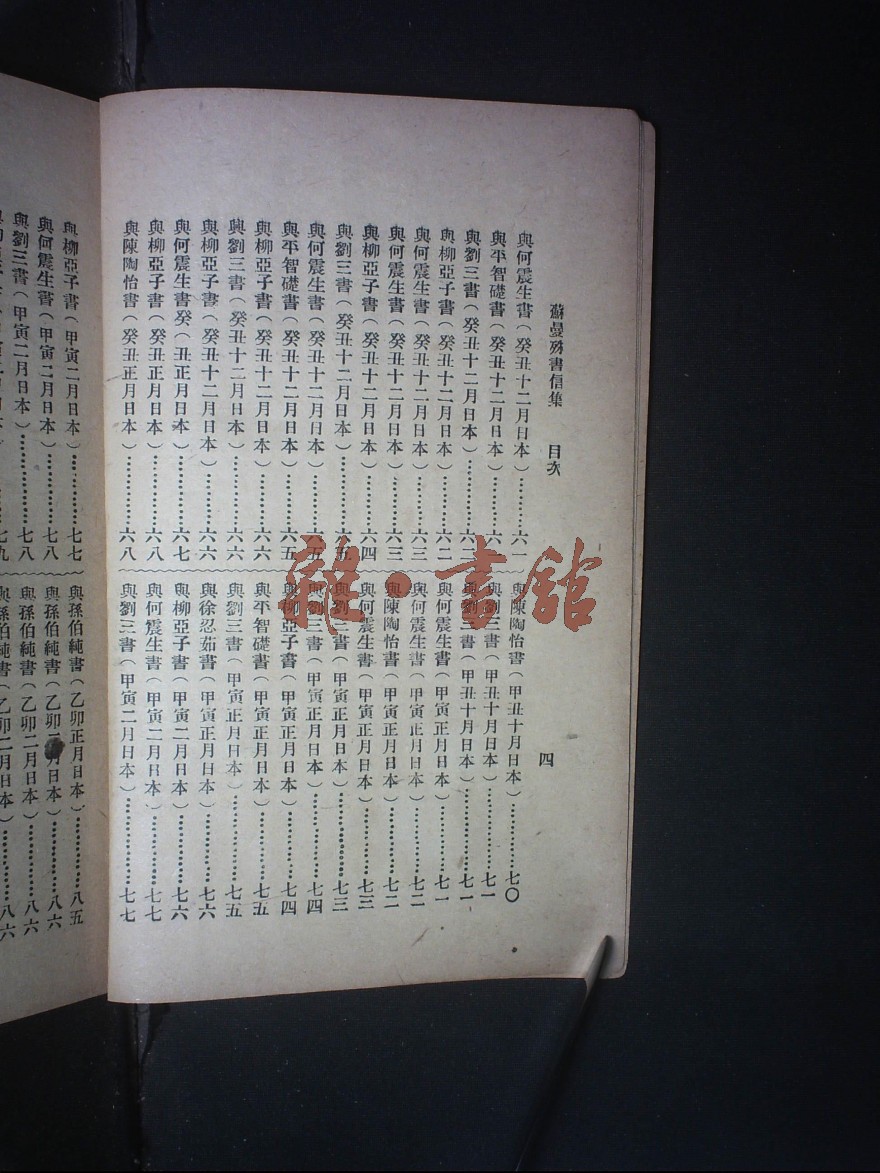 蘇曼殊書信集 目次 四
與何震生書（癸丑十二月日本）…………六一
與平智礎書（癸丑十二月日本）…………六一
與劉三書（癸丑十二月日本）…………六二
與柳亞子書（癸丑十二月日本）…………六二
與何震生書（癸丑十二月日本）…………六三
與何震生書（癸丑十二月日本）…………六三
與柳亞子書（癸丑十二月日本）…………六四
與劉三書（癸丑十二月日本）…………六五
與何震生書（癸丑十二月日本）…………六五
與平智礎書（癸丑十二月日本）…………六五
與柳亞子書（癸丑十二月日本）…………六六
與劉三書（癸丑十二月日本）…………六六
與柳亞子書（癸丑十二月日本）…………六六
與何震生書癸（丑正月日本）…………六七
與柳亞子書（癸丑正月日本）…………六八
與陳陶怡書（癸丑正月日本）…………六八
與陳陶怡書（甲丑十月日本）…………七〇
與劉三書（甲丑十月日本）…………七一
與劉三書（甲丑十月日本）…………七一
與何震生書（甲寅正月日本）…………七一
與何震生書（甲寅正月日本）…………七二
與陳陶怡書（甲寅正月日本）…………七二
與何震生書（甲寅正月日本）…………七三
與劉三書（甲寅正月日本）…………七三
與劉三書（甲寅正月日本）…………七四
與柳亞子書（甲寅正月日本）…………七四
與平智礎書（甲寅正月日本）…………七五
與劉三書（甲寅正月日本）…………七五
與徐忍茹書（甲寅正月日本）…………七六
與柳亞子書（甲寅二月日本）…………七六
與何震生書（甲寅二月日本）…………七七
與劉三書（甲寅二月日本）…………七七
與柳亞子書（甲寅二月日本）…………七七
與何震生書（甲寅二月日本）…………七八
與劉三書（甲寅二月日本）…………七八
七九
與孫伯純書（乙卯正月日本）…………八五
與孫伯純書（乙卯二月日本）…………八六
與孫伯純書（乙卯二月日本）…………八六
與孫伯純書（乙卯二月日本）…………八六
雜·書館